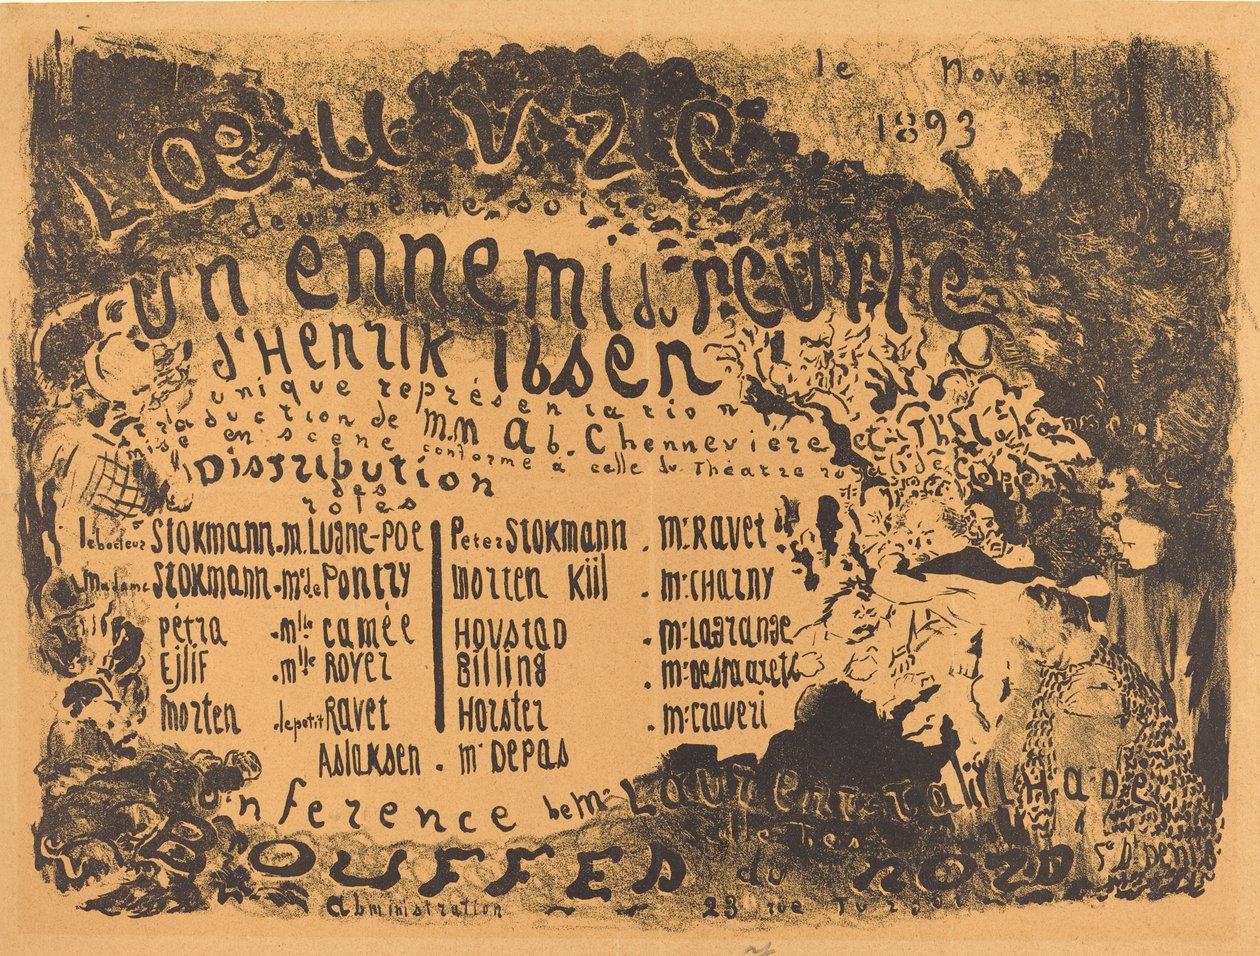 le Novem
1893
L'Œuvre
deuxième soirée
un ennemi du peuple
d'Henrik Ibsen
unique représentation
traduction de M.M Ab. Chennevière et
mise en scène conforme à celle du Théatre royal de
Distribution
des
rôles
le docteur Stokmann. M. Lugné-Poe
Madame Stokmann. Me de Pontzy
Pétra . Mlle Camée
Ejlif . Mlle Royer
Morten . le petit Ravet
Peter Stokmann . Mr. Ravet
Morten Kiil . Mr. Charny
Hovstad . Mr. Lagrange
Billing . Mr. Desmarets
Horster . Mr. Craveri
Aslaksen . Mr Depas
Conférence de Mr Laurent Tailhade
Bouffes du Nord
Administration 23 rue Turgot